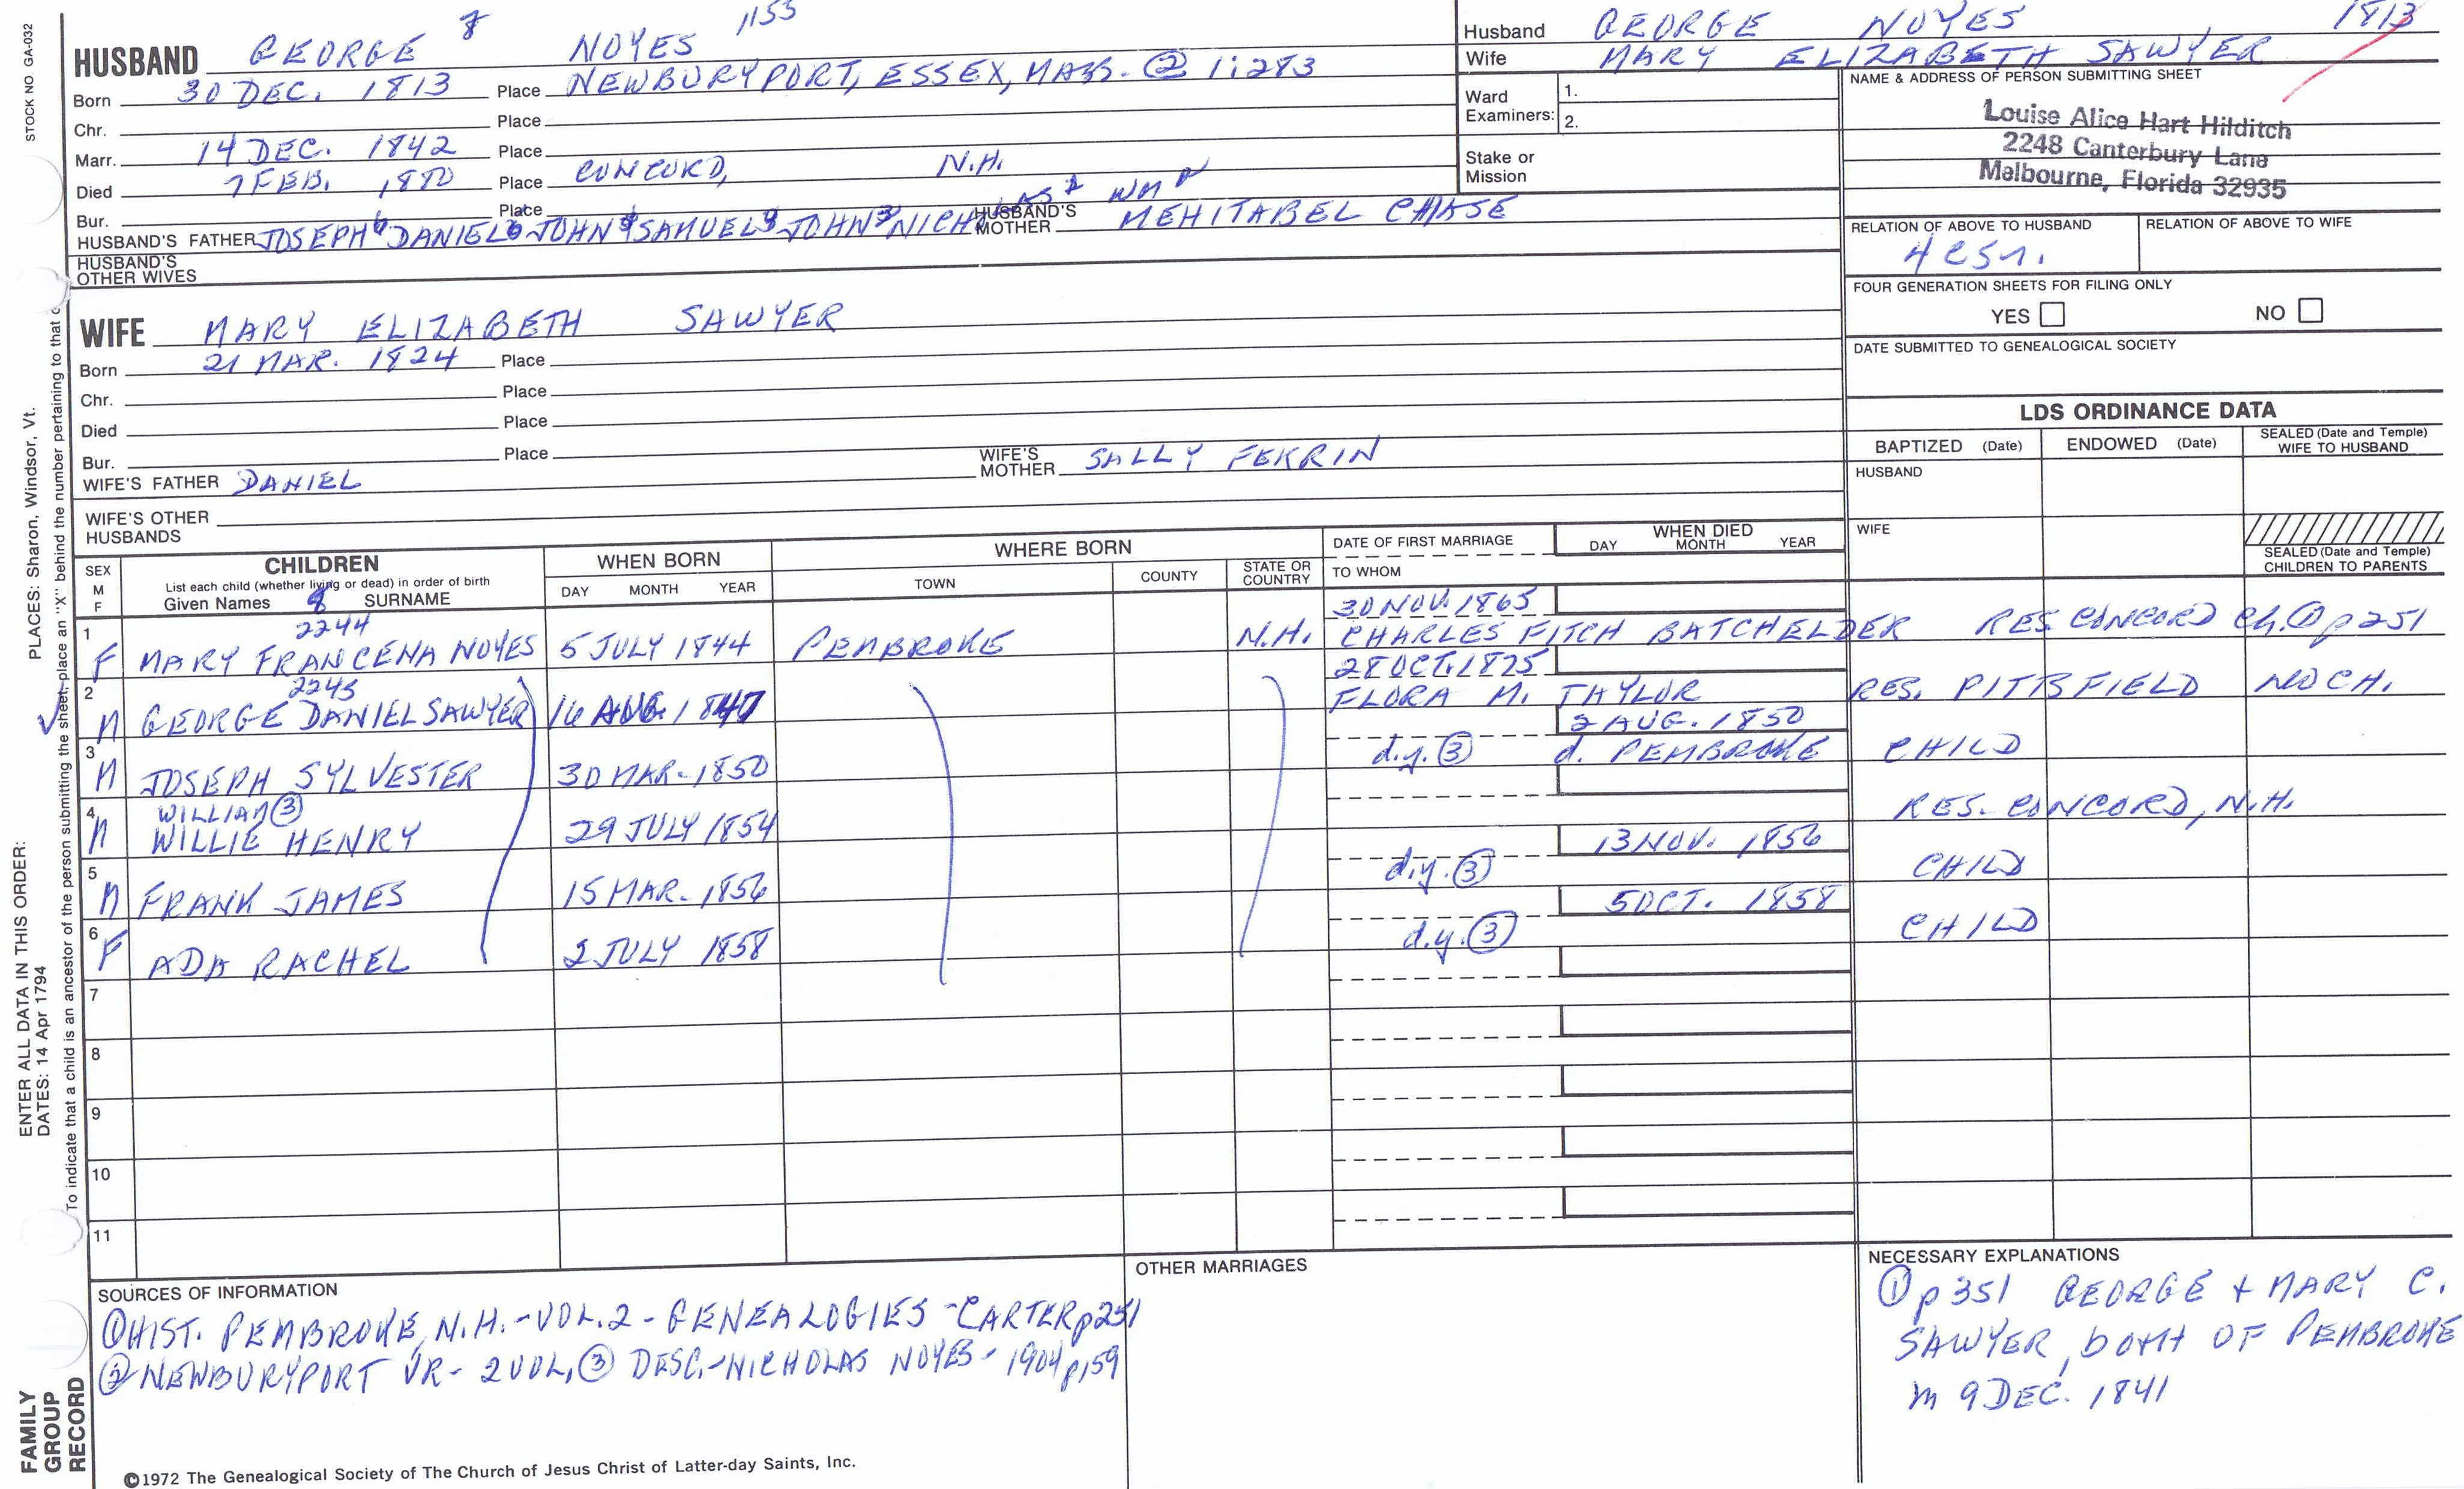 STOCK NO GA-032
HUSBAND GEORGE 8 NOYES 1155
Born 30 DEC. 1813 Place NEWBURYPORT, ESSEX, MASS. ② 1:283
Chr. Place
Marr. 14 DEC. 1842 Place
Died 7 FEB. Place CONCORD, N.H.
Bur. Place
HUSBAND'S FATHER JOSEPH DANIEL JOHN SAMUEL JOHN NICH HUSBAND'S MOTHER MEHITABEL CHASE
HUSBAND'S
OTHER WIVES
Husband GEORGE NOYES 1813
Wife MARY ELIZABETH SAWYER
Ward Examiners: 1.
2.
Stake or
Mission
NAME & ADDRESS OF PERSON SUBMITTING SHEET
Louise Alice Hart Hilditch
2248 Canterbury Lane
Melbourne, Florida 32935
RELATION OF ABOVE TO HUSBAND RELATION OF ABOVE TO WIFE
4 csn.
FOUR GENERATION SHEETS FOR FILING ONLY
YES NO
DATE SUBMITTED TO GENEALOGICAL SOCIETY
WIFE MARY ELIZABETH SAWYER
Born 21 MAR. 1824 Place
Chr. Place
Died Place
Bur. Place
WIFE'S FATHER DANIEL WIFE'S MOTHER SALLY FERRIN
WIFE'S OTHER
HUSBANDS
LDS ORDINANCE DATA
BAPTIZED (Date) ENDOWED (Date) SEALED (Date and Temple) WIFE TO HUSBAND
HUSBAND
WIFE
SEALED (Date and Temple)
CHILDREN TO PARENTS
SEX M F CHILDREN WHEN BORN WHERE BORN DATE OF FIRST MARRIAGE WHEN DIED
List each child (whether living or dead) in order of birth
Given Names 9 SURNAME DAY MONTH YEAR TOWN COUNTY STATE OR COUNTRY TO WHOM DAY MONTH YEAR
2244 30 NOV. 1865
1 F MARY FRANCENA NOYES 5 JULY 1844 PEMBROKE N.H. CHARLES FITCH BATCHELDER RES CONCORD Ch. ① p 251
2245 28 OCT. 1875
2 M GEORGE DANIEL SAWYER 16 AUG. 1847 FLORA M. TAYLOR RES. PITTSFIELD NO CH.
2 AUG. 1850
3 M JOSEPH SYLVESTER 30 MAR. 1850 d.y. ③ d. PEMBROKE CHILD
WILLIAM ③
4 M WILLIE HENRY 29 JULY 1854 RES. CONCORD, N.H.
13 NOV. 1856
5 M FRANK JAMES 15 MAR. 1856 d.y. ③ CHILD
5 OCT. 1858
6 F ADA RACHEL 2 JULY 1858 d.y. ③ CHILD
7
8
9
10
11
SOURCES OF INFORMATION
① HIST. PEMBROKE, N.H. - VOL. 2 - GENEALOGIES - CARTER p 251
② NEWBURYPORT VR - 2 VOL. ③ DESC. - NICHOLAS NOYES - 1904 p 159
OTHER MARRIAGES
NECESSARY EXPLANATIONS
① p 351 GEORGE + MARY C.
SAWYER, both OF PEMBROKE
m 9 DEC. 1841
©1972 The Genealogical Society of The Church of Jesus Christ of Latter-day Saints, Inc.
ENTER ALL DATA IN THIS ORDER:
DATES: 14 Apr 1794
PLACES: Sharon, Windsor, Vt.
To indicate that a child is an ancestor of the person submitting the sheet, place an "X" behind the number pertaining to that
FAMILY
GROUP
RECORD